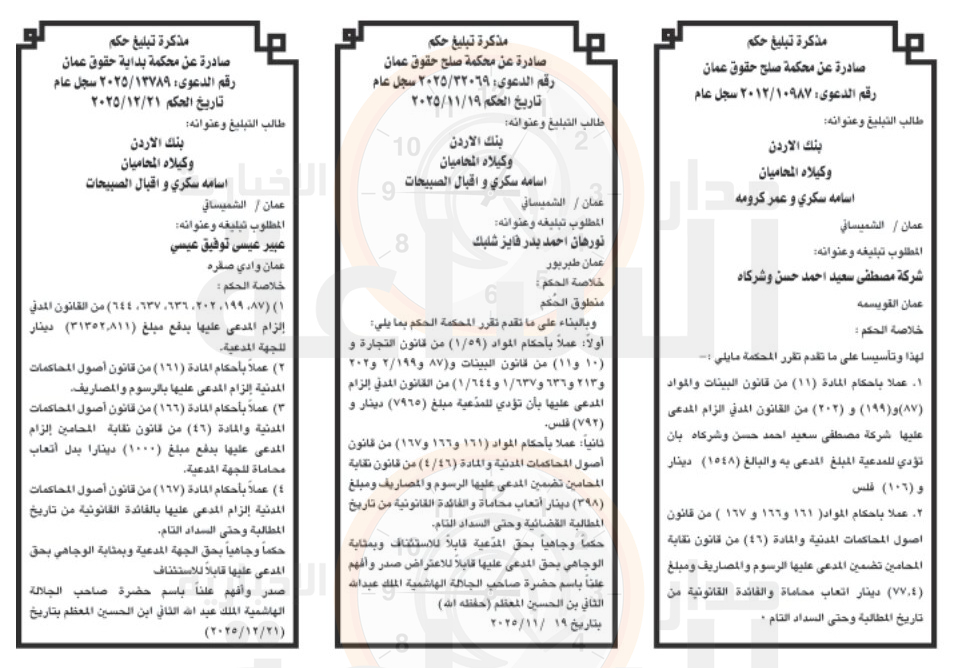 مذكرة تبليغ حكم
صادرة عن محكمة صلح حقوق عمان
رقم الدعوى: ٢٠١٢/١٠٩٨٧ سجل عام
طالب التبليغ وعنوانه:
بنك الاردن
وكيلاه المحاميان
اسامه سكري و عمر كرومه
عمان / الشميساني
المطلوب تبليغه وعنوانه:
شركة مصطفى سعيد احمد حسن وشركاه
عمان القويسمه
خلاصة الحكم :
لهذا وتأسيسا على ما تقدم تقرر المحكمة مايلي :–
١. عملا باحكام المادة (١١) من قانون البينات والمواد
(٨٧)و(١٩٩) و (٢٠٢) من القانون المدني الزام المدعى
عليها شركة مصطفى سعيد احمد حسن وشركاه بان
تؤدي للمدعية المبلغ المدعى به والبالغ (١٥٤٨) دينار
و (١٠٦) فلس
٢. عملا باحكام المواد( ١٦١ و١٦٦ و ١٦٧ ) من قانون
اصول المحاكمات المدنية والمادة (٤٦) من قانون نقابة
المحامين تضمين المدعى عليها الرسوم و المصاريف ومبلغ
(٧٧,٤) دينار اتعاب محاماة والفائدة القانونية من
تاريخ المطالبة وحتى السداد التام ٠
مذكرة تبليغ حكم
صادرة عن محكمة صلح حقوق عمان
رقم الدعوى: ٢٠٢٥/٣٢٠٦٩ سجل عام
تاريخ الحكم ٢٠٢٥/١١/١٩
طالب التبليغ وعنوانه:
بنك الاردن
وكيلاه المحاميان
اسامه سكري و اقبال الصبيحات
عمان / الشميساني
المطلوب تبليغه وعنوانه:
نورهان احمد بدر فايز شلبك
عمان طبربور
خلاصة الحكم :
منطوق الحُكم
وبالبناء على ما تقدم تقرر المحكمة الحكم بما يلي:
أولاً: عملاً بأحكام المواد (١/٥٩) من قانون التجارة و
(١٠ و١١) من قانون البينات و(٨٧ و٢/١٩٩ و٢٠٢
و٢١٣ و٦٣٦ و١/٦٣٧ و١/٦٤٤) من القانون المدني إلزام
المدعى عليها بأن تؤدي للمدّعية مبلغ (٧٩٦٥) دينار و
(٧٩٢) فلس.
ثانياً: عملا بأحكام المواد (١٦١ و١٦٦ و١٦٧) من قانون
أصول المحاكمات المدنية والمادة (٤/٤٦) من قانون نقابة
المحامين تضمين المدعى عليها الرسوم و المصاريف ومبلغ
(٣٩٨) دينار أتعاب محاماة والفائدة القانونية من تاريخ
المطالبة القضائية وحتى السداد التام.
حكماً وجاهياً بحق المدّعية قابلاً للاستئناف وبمثابة
الوجاهي بحق المدعى عليها قابلا للاعتراض صدر وأفهم
علناً باسم حضرة صاحب الجلالة الهاشمية الملك عبدالله
الثاني بن الحسين المعظم (حفظه الله)
بتاريخ ١٩ /٢٠٢٥/١١
مذكرة تبليغ حكم
صادرة عن محكمة بداية حقوق عمان
رقم الدعوى: ٢٠٢٥/١٣٧٨٩ سجل عام
تاريخ الحكم ٢٠٢٥/١٢/٢١
طالب التبليغ وعنوانه:
بنك الاردن
وكيلاه المحاميان
اسامه سكري و اقبال الصبيحات
عمان / الشميساني
المطلوب تبليغه وعنوانه:
عبير عيسى توفيق عيسى
عمان وادي صقره
خلاصة الحكم :
١) (٨٧، ١٩٩، ٢٠٢، ٦٣٦، ٦٣٧، ٦٤٤) من القانون المدني
إلزام المدعى عليها بدفع مبلغ (٣١٣٥٢,٨١١) دينار
للجهة المدعية.
٢) عملاً بأحكام المادة (١٦١) من قانون أصول المحاكمات
المدنية إلزام المدعى عليها بالرسوم والمصاريف.
٣) عملاً بأحكام المادة (١٦٦) من قانون أصول المحاكمات
المدنية والمادة (٤٦) من قانون نقابة المحامين إلزام
المدعى عليها بدفع مبلغ (١٠٠٠) دينارا بدل أتعاب
محاماة للجهة المدعية.
٤) عملاً بأحكام المادة (١٦٧) من قانون أصول المحاكمات
المدنية إلزام المدعى عليها بالفائدة القانونية من تاريخ
المطالبة وحتى السداد التام.
حكماً وجاهياً بحق الجهة المدعية وبمثابة الوجاهي بحق
المدعى عليها قابلاً للاستئناف
صدر وأفهم علناً باسم حضرة صاحب الجلالة
الهاشمية الملك عبد الله الثاني ابن الحسين المعظم بتاريخ
(٢٠٢٥/١٢/٢١)